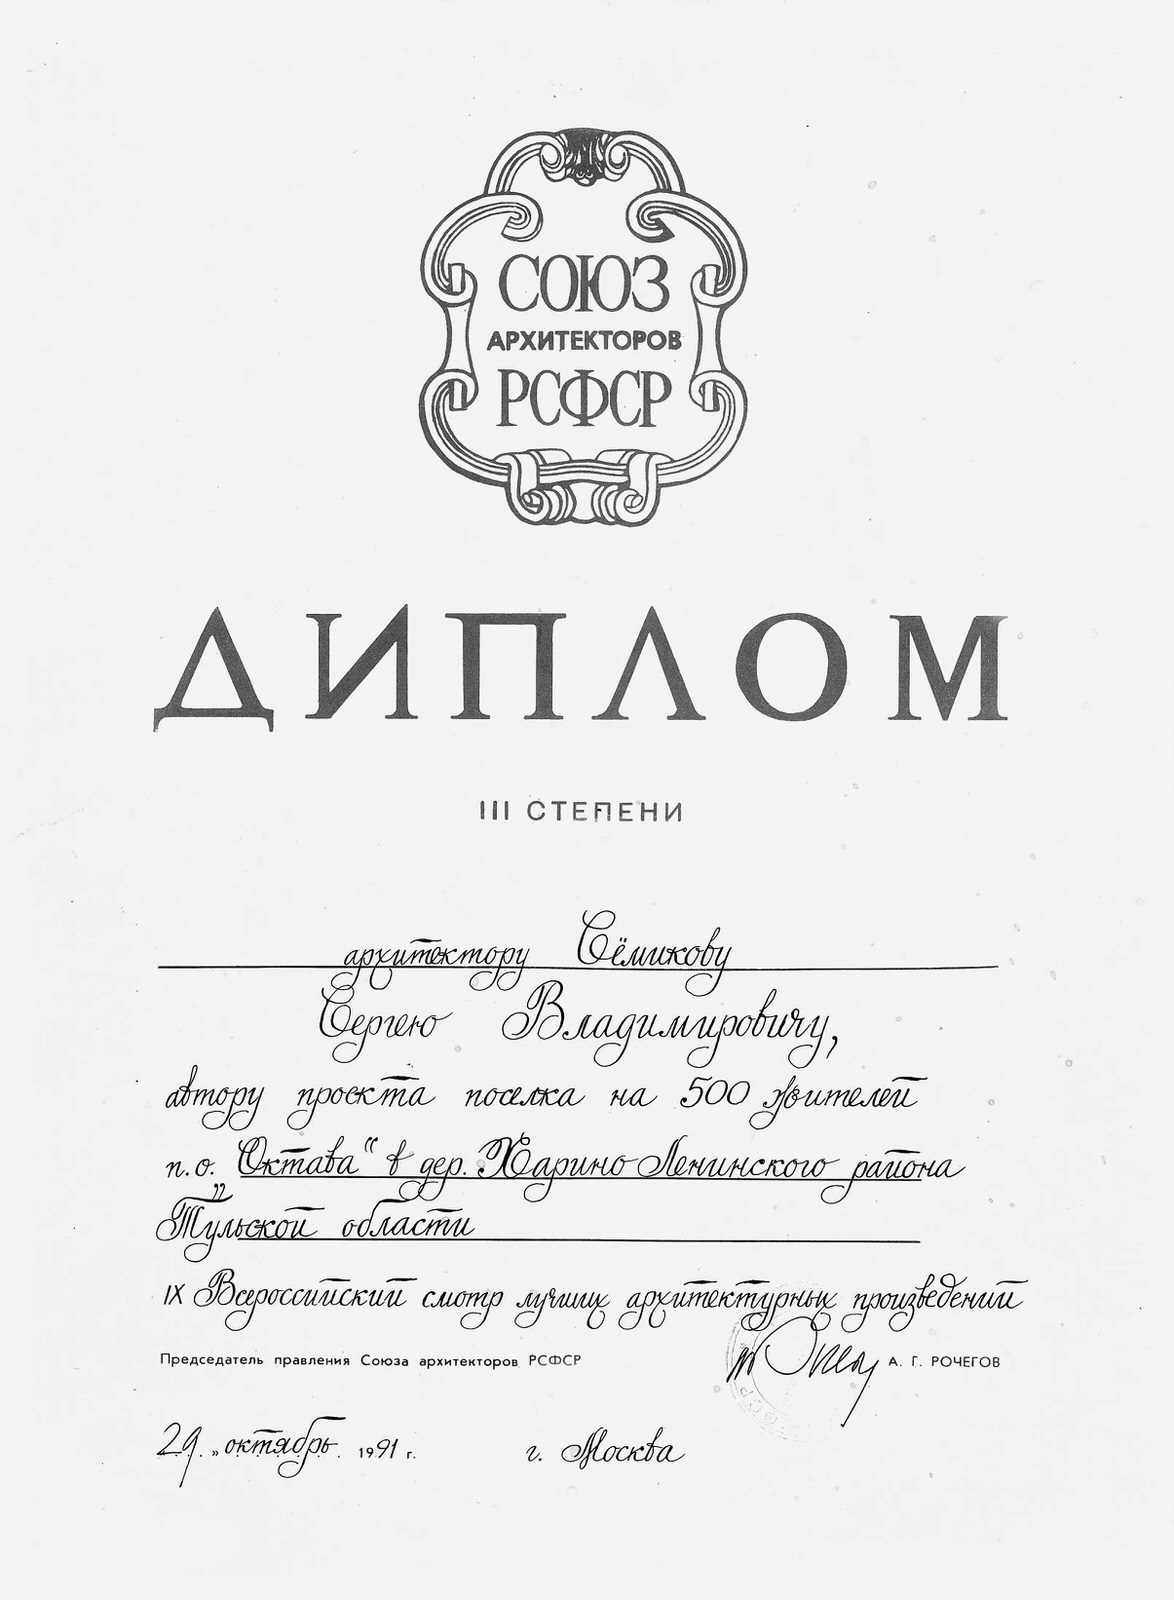 СОЮЗ
АРХИТЕКТОРОВ
РСФСР
ДИПЛОМ
III СТЕПЕНИ
архитектору Сёмикову
Сергею Владимировичу,
автору проекта поселка на 500 жителей
п.о. „Октава“ в дер. Харино Ленинского района
Тульской области
IX Всероссийский смотр лучших архитектурных произведений
Председатель правления Союза архитекторов РСФСР А. Г. РОЧЕГОВ
29 „ октябрь 1991 г. г. Москва